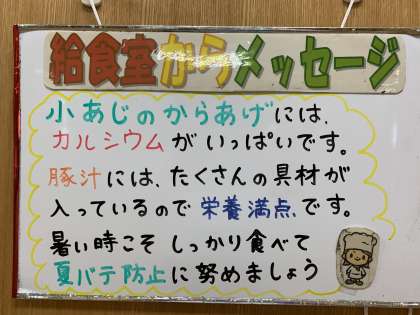 給食室からメッセージ
小あじのからあげには、
カルシウムがいっぱいです。
豚汁には、たくさんの具材が
入っているので栄養満点です。
暑い時こそしっかり食べて
夏バテ防止に努めましょう